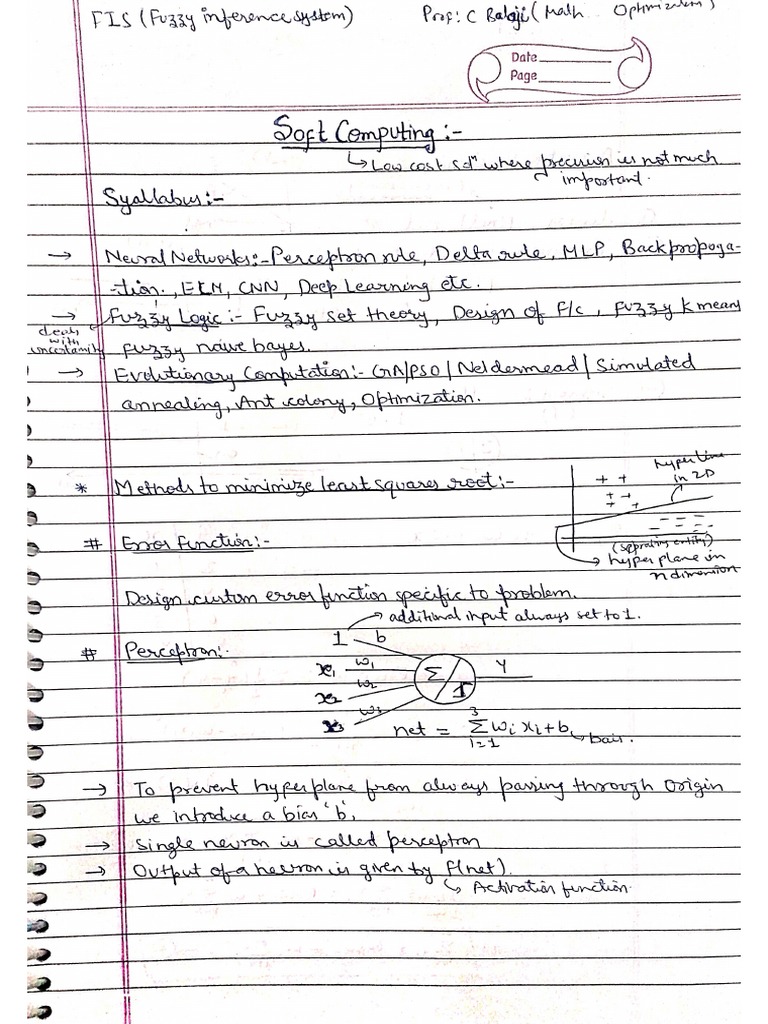 FIS (Fuzzy inference system) Prof: C Balaji (Math Optimization)
Date
Page
Soft Computing :-
↳ Low cost solⁿ where precision is not much
important.
Syallabus :-
→ Neural Networks:- Perceptron rule, Delta rule, MLP, Backpropoga-
-tion, ELN, CNN, Deep Learning etc.
→ Fuzzy Logic :- Fuzzy set theory, Design of F/c, Fuzzy k means
deals with uncertainity
Fuzzy naive bayes.
→ Evolutionary Computation:- GA/PSO/Neldermead/Simulated
annealing, Ant colony, Optimization.
* Methods to minimize least squares root:-
hyperline in 2D
+ +
+ + +
+ +
(seprating entity)
→ hyperplane in
n dimension
# Error Function:-
Design custom error function specific to problem.
→ additional input always set to 1.
# Perceptron:-
1 b
x₁ w₁
x₂ w₂
x₃ w₃
Σ/ʃ Y
net = Σ wᵢ xᵢ + b
3
i=1
↳ bais.
→ To prevent hyperplane from always passing through origin
we introduce a bias 'b'.
→ Single neuron is called perceptron
→ Output of a neuron is given by f(net).
↳ Activation function.